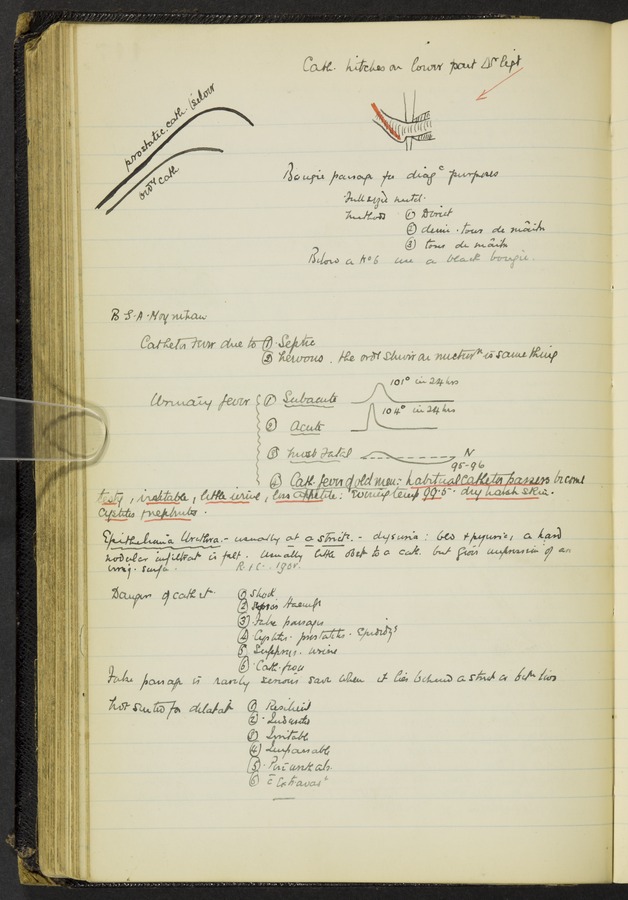 Cath. hitches on lower part Δr ligt
prostatic cath. below
ordy cath
Bougie passage for diagc purposes
Full sized metal.
Methods ① Direct
② demi-tour de maître
③ tour de maître
Below a No 6 use a black bougie.
B G.A. Moynihan
Catheter fever due to ① Septic
② Nervous. the ordy shiver on micturn is same thing
Urinary fever ① Subacute 101° in 24 hrs
② Acute 104° in 24 hrs
③ Most Fatal N
95-96
④ Cath. fever of old men: habitual catheter passers become
testy, irritable, little urine, less appetite: evening temp 99.5. dry harsh skin.
Cystitis nephritis.
Epithelioma Urethra. - usually at a strict. - dysuria: bld + pyuria, a hard
nodular infiltrat is felt. Usually little obst to a cath. but gives impression of an
irreg. surface. 1908.
Dangers of cath
① Shock
② Haemge
③ False passages
④ Cystitis. prostatitis. Epididys
⑤ Suppress. urine
⑥ Cath. fever
False passage is rarely serious save when it lies behind a strict or betw two
Not suited for dilatat ① Resilient
② Indurated
③ Irritable
④ Impassable
⑤ Periureth abs.
⑥ c̄ Extravasn